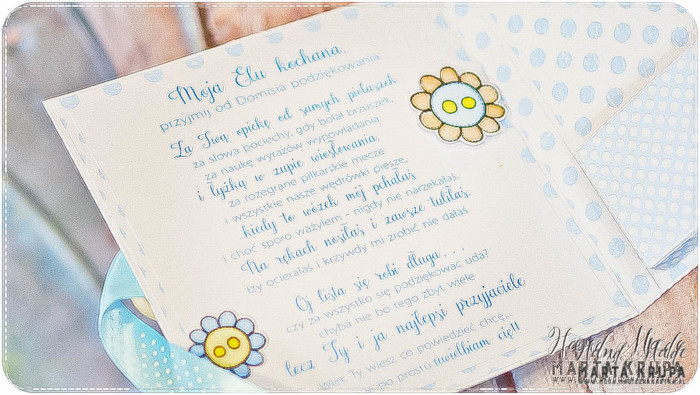 Moja Elu kochana,
przyjmij od Domisia podziękowania
Za Twą opiekę od samych pieluszek
za słowa pociechy, gdy bolał brzuszek,
za naukę wyrazów wypowiadania
i łyżką w zupie wiosłowania
za rozegrane piłkarskie mecze
i wszystkie nasze wędrówki piesze,
kiedy to wózek mój pchałaś
i choć sporo ważyłem - nigdy nie narzekałaś.
Na rękach nosiłaś i zawsze tuliłaś
łzy ocierałaś i krzywdy mi zrobić nie dałaś
Oj lista się robi długa . . .
czy za wszystko się podziękować uda?
chyba nie bo tego zbyt wiele
lecz Ty i ja najlepsi przyjaciele
więc Ty wiesz co powiedzieć chcę...
po prostu uwielbiam cię!!
MARTA KRUPA